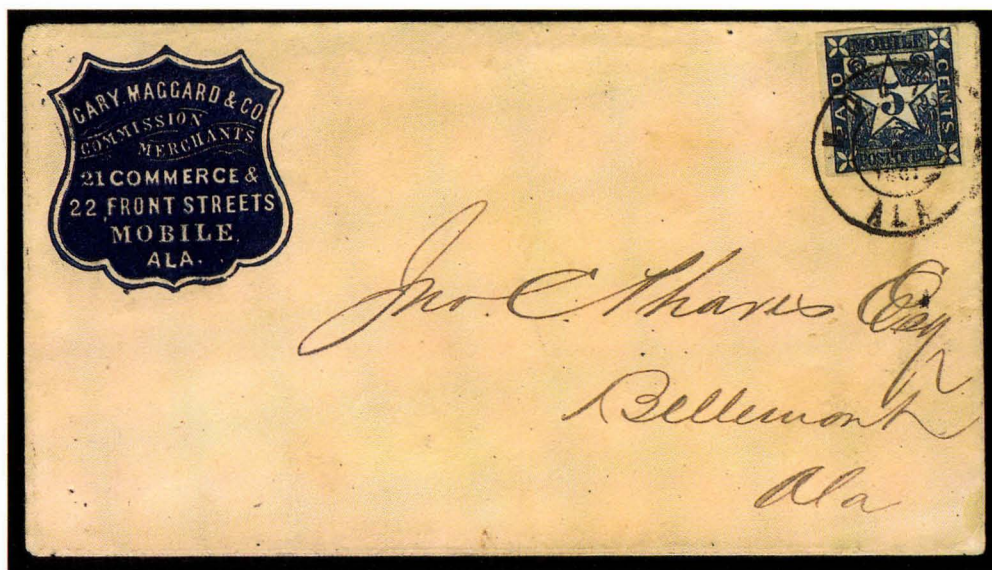 GARY, MAGGARD & CO.
COMMISSION
MERCHANTS
21 COMMERCE &
22 FRONT STREETS
MOBILE,
ALA.
MOBILE
PAID
5
CENTS
POST OFFICE
ALA
Jno. C. Esq
Bellemont
Ala